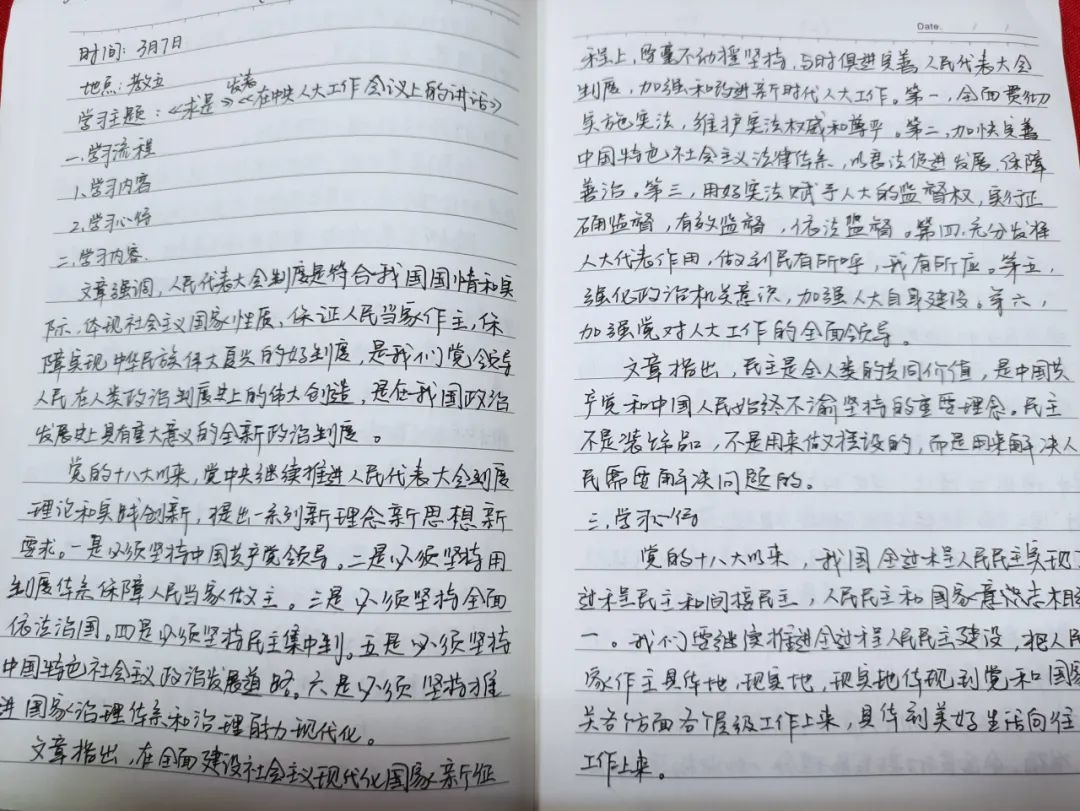 时间：3月7日
地点：教立
学习主题：《求是》发表《在中央人大工作会议上的讲话》
一.学习流程
1.学习内容
2.学习心得
二.学习内容.
文章强调，人民代表大会制度是符合我国国情和实
际、体现社会主义国家性质、保证人民当家作主、保
障实现中华民族伟大复兴的好制度，是我们党领导
人民在人类政治制度史上的伟大创造，是在我国政治
发展史上具有重大意义的全新政治制度。
党的十八大以来，党中央继续推进人民代表大会制度
理论和实践创新，提出一系列新理念新思想新
要求。一是必须坚持中国共产党领导。二是必须坚持用
制度体系保障人民当家做主。三是必须坚持全面
依法治国。四是必须坚持民主集中制。五是必须坚持
中国特色社会主义政治发展道路。六是必须坚持推
进国家治理体系和治理能力现代化。
文章指出，在全面建设社会主义现代化国家新征
Date. / /
程上，毫不动摇坚持，与时俱进完善人民代表大会
制度，加强和改进新时代人大工作。第一，全面贯彻
实施宪法，维护宪法权威和尊严。第二，加快完善
中国特色社会主义法律体系，以良法促进发展、保障
善治。第三，用好宪法赋予人大的监督权，实行正
确监督，有效监督，依法监督。第四，充分发挥
人大代表作用，做到民有所呼，我有所应。第五，
强化政治机关意识，加强人大自身建设。第六，
加强党对人大工作的全面领导。
文章指出，民主是全人类的共同价值，是中国共
产党和中国人民始终不渝坚持的重要理念。民主
不是装饰品，不是用来做摆设的，而是用来解决人
民需要解决问题的。
三.学习心得
党的十八大以来，我国全过程人民民主实现
过程民主和间接民主，人民民主和国家意志相
一。我们要继续推进全过程人民民主建设，把人民
家作主具体地、现实地，现实地体现到党和国家
关各方面各个层级工作上来，具体到美好生活向往
工作上来。